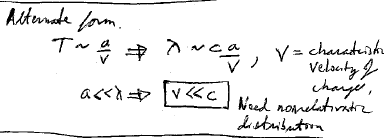 Alternate form.
T ~ a/v ⇒ λ ~ c a/v, v = characteristic velocity of charges,
a << λ ⇒ v << c
Need nonrelativistic distribution